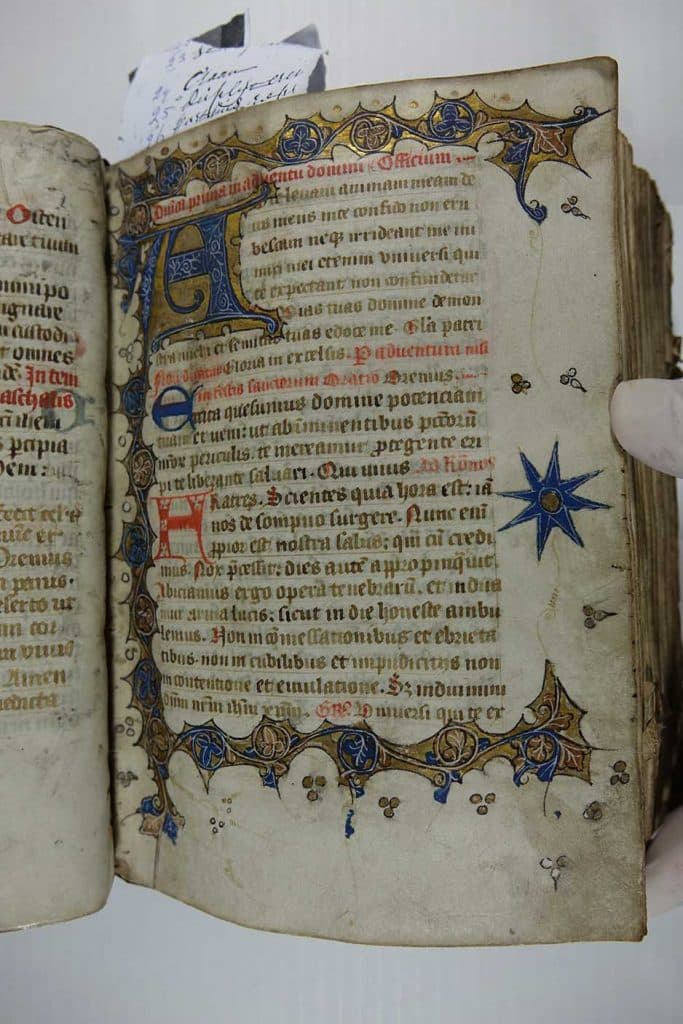 23
Oiten
mini po
custodi
t omnes
In tem
aschalis
pcipia
dem:
Oremus
panis.
Amen
nedicta
Dnica prima in adventu domini Officium
Ad te levavi animam meam de
us meus in te confido non eru
bescam neq irrideant me ini
mici mei etenim universi qui
te expectant non confundetur
Vias tuas domine demon
stra michi et semitas tuas edoce me. Gla patri
Non dicitur Gloria in excelsis. P adventum nisi
in festis sanctorum Oratio Oremus.
Excita quesumus domine potenciam
tuam et veni: ut ab iminentibus pctorum
nror periculis. te mereamur protegente eri
pi te liberante salvari. Qui vivis Ad Romos
Fratres. Scientes quia hora est: ia
nos de sompno surgere. Nunc eni
ppior est nostra salus: qm cu credi
mus. Nox pcessit: dies aute appropinqvit
Abiciamus ergo opera tenebraru. et indua
mur arma lucis: sicut in die honeste ambu
lemus. Non in comessationibus et ebrieta
tibus. non in cubilibus et impudiciciis non
in contentione et emulatione. Sz induimini
dnm nrm ihm xpm. Gr. Universi qui te ex